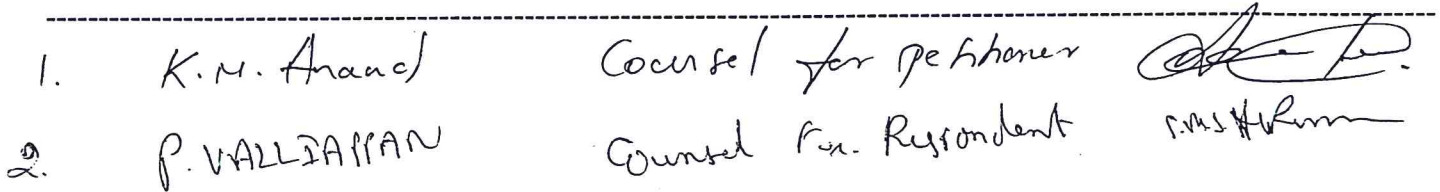 1. K.M. Anand Counsel for petitioner
2. P. VALLIAPPAN Counsel For. Respondent